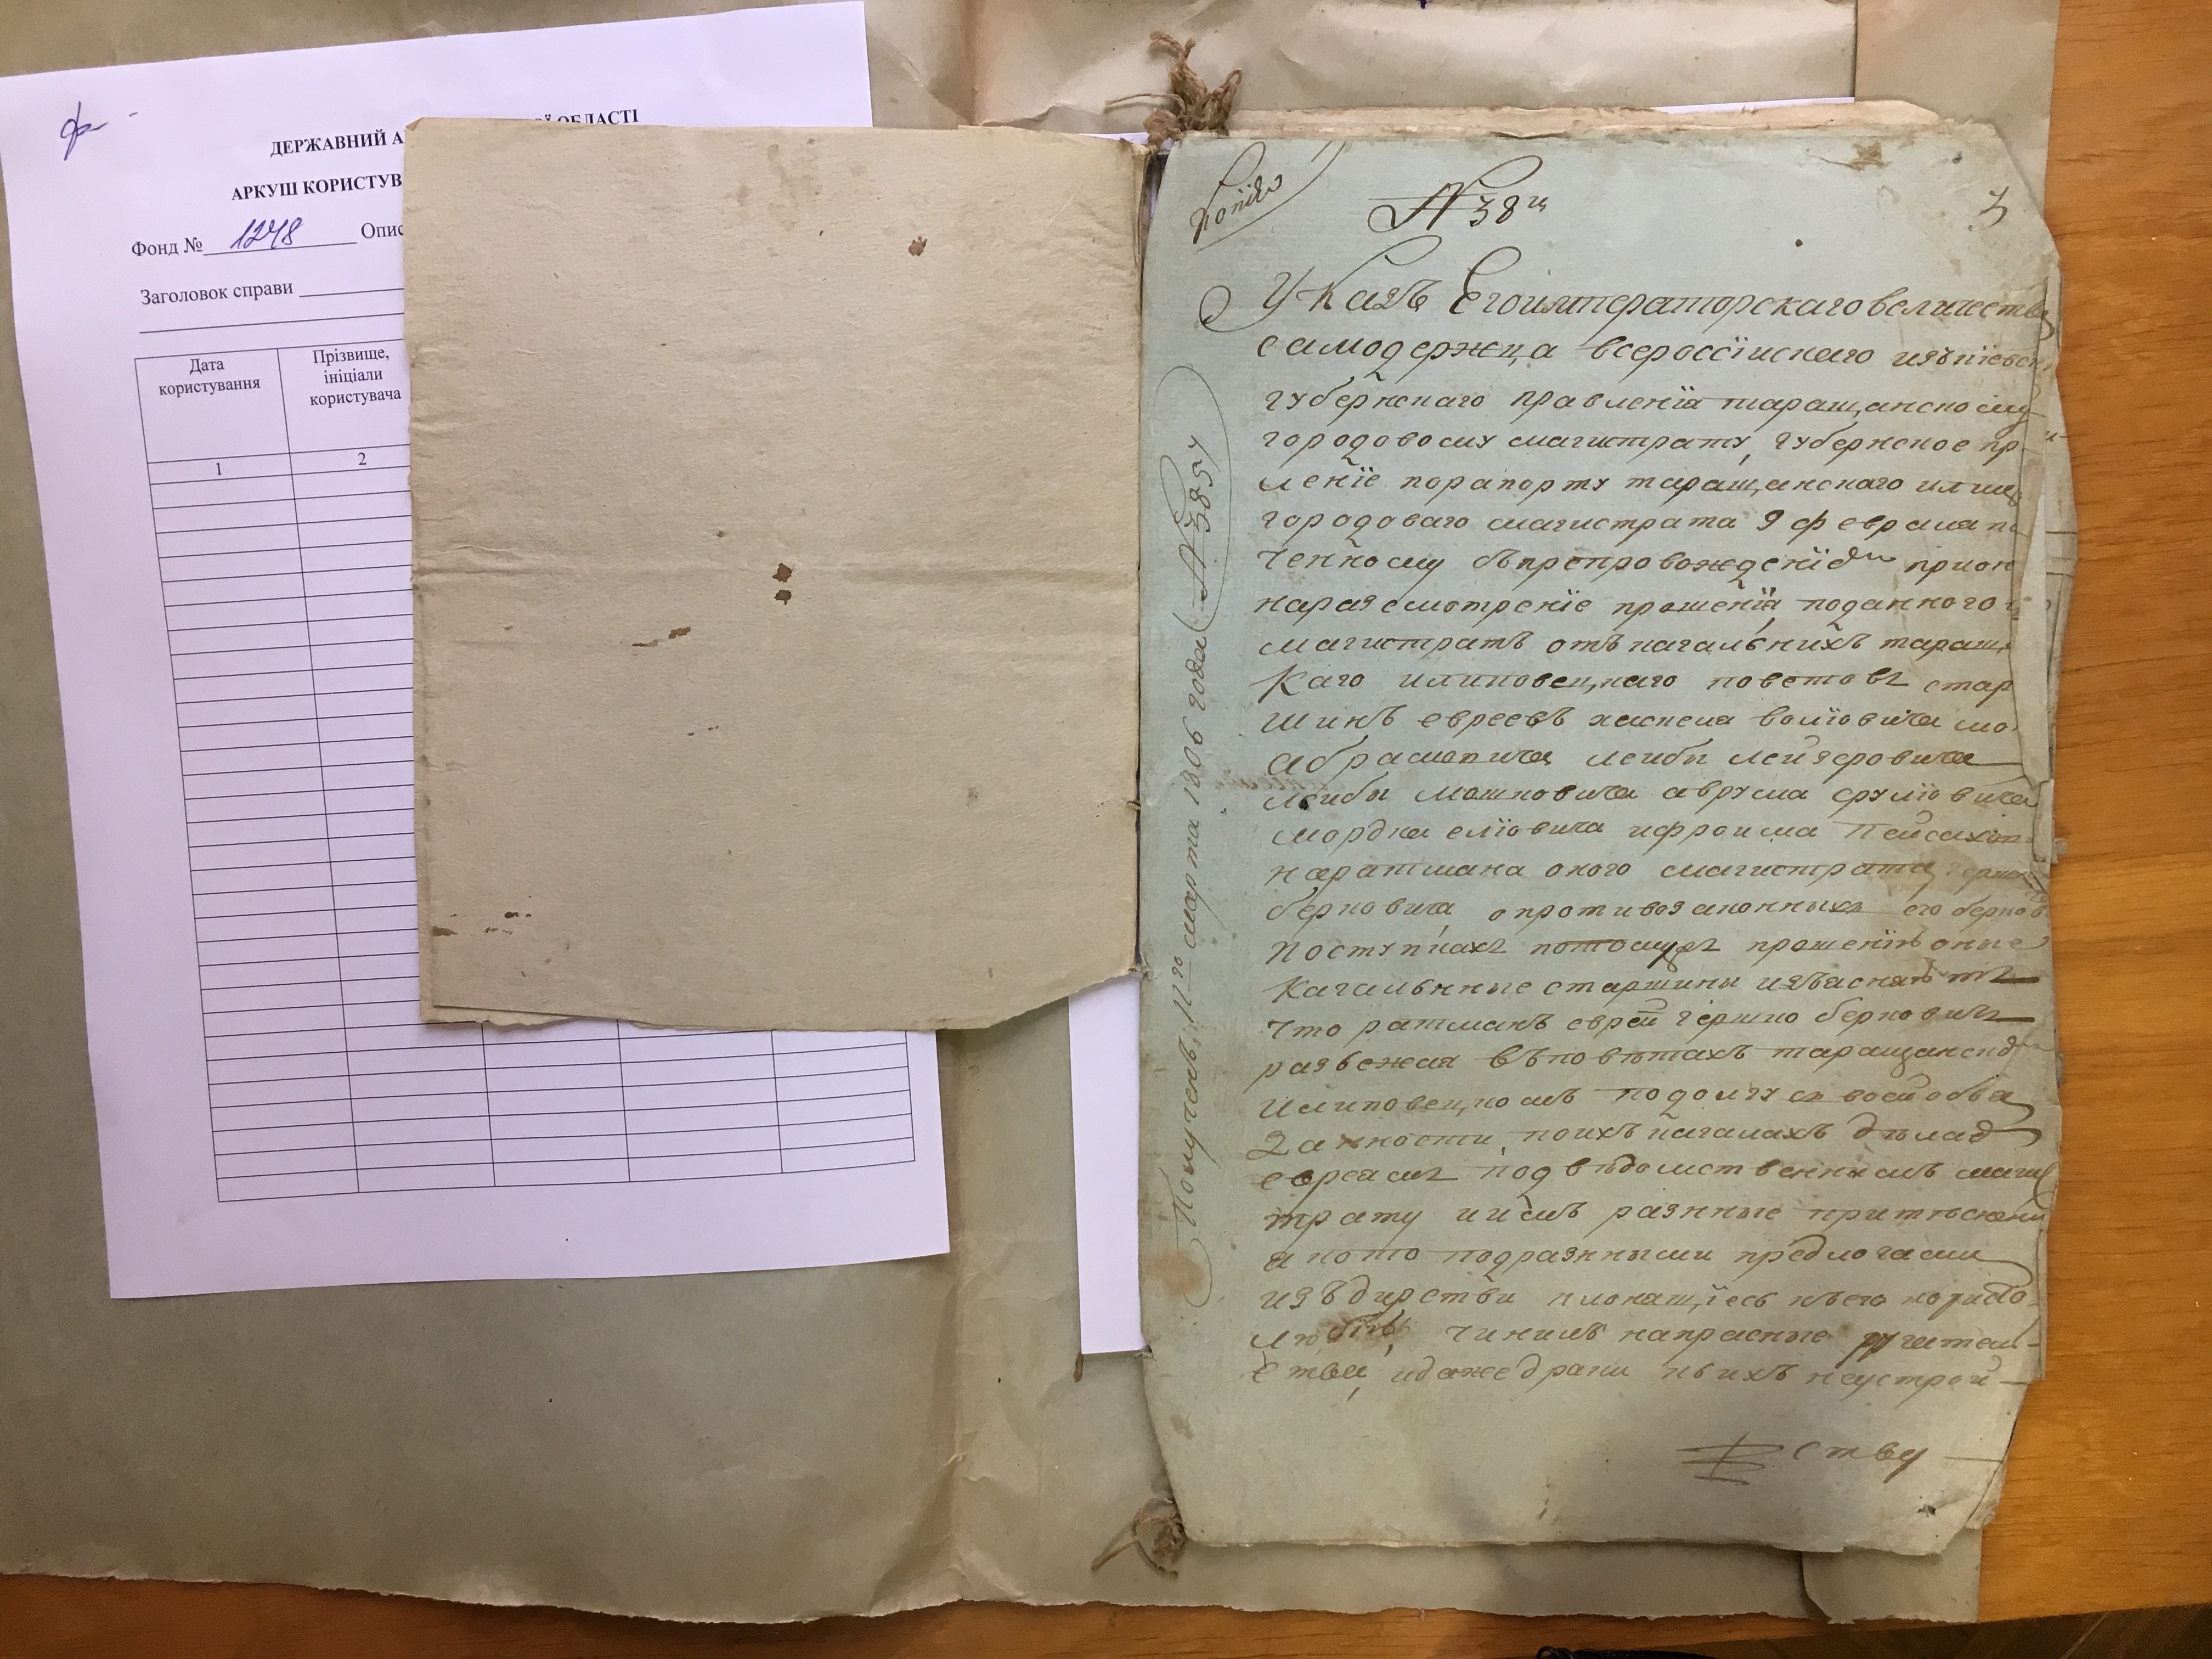 ф-
ДЕРЖАВНИЙ А
ОЇ ОБЛАСТІ
АРКУШ КОРИСТУВ
Фонд № 1248 Опис
Заголовок справи
Дата користування
Прізвище, ініціали користувача
1 2
Копія
№ 38й
3
Указъ Его императорскаго величества
самодержца всероссіискаго изъ кіевск
губернскаго правленія таращанскому
городовому магистрату, губернское пр
леніе по рапорту таращанскаго и лип
городоваго магистрата 9 февраля по
ченному съ препровожденіем при он
на разсмотреніе прошенія, поданного
магистратъ отъ кагальнихъ таращ
каго и липовецкаго поветовъ стар
шинъ евреевъ хаскеля волювича мо
абрамовича лейбы лейзеровича
лейбы мошковича аврума срулювича
мордка еліовича и фроима Пейсахо
на ратмана оного магистрата гершк
берковича, о противозаконныхъ его берков
поступкахъ по тому прошенію оные
Кагальные старшины изъясняютъ
что ратманъ еврей гершко берковичъ
разъежая въ повѣтахъ таращанском
и липовецкомъ по долгу своей обя
занности, по ихъ кагалахъ дѣлал
евреямъ подвѣдомственнымъ магис
трату и имъ разные притѣснени
а кого под разными предлогами
издирстви клонящіесь къ его користо-
любію, чинилъ напрасные ругатель-
ства, и даже драки къ ихъ неустрой-
ству
Полученъ, 11го марта 1806 года № 3857